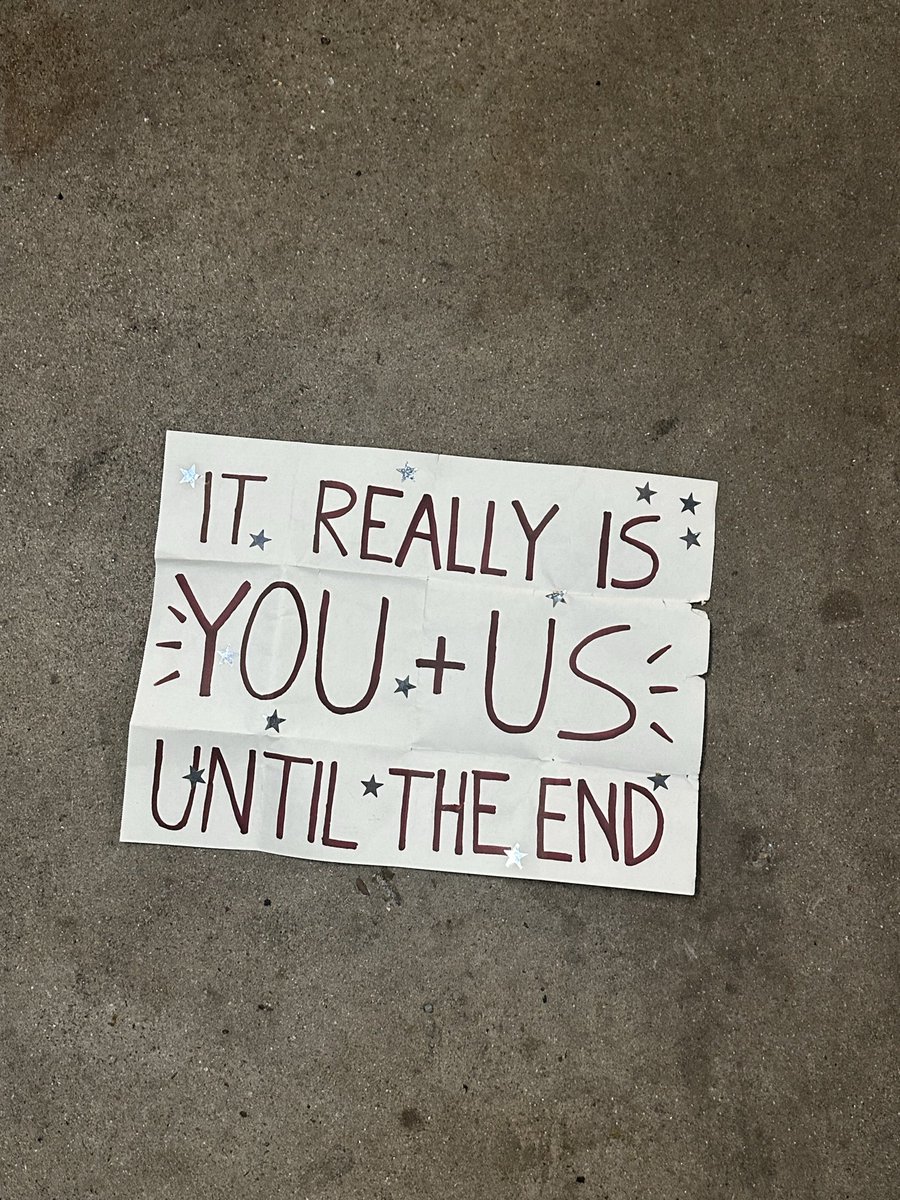 IT REALLY IS
YOU + US
UNTIL THE END